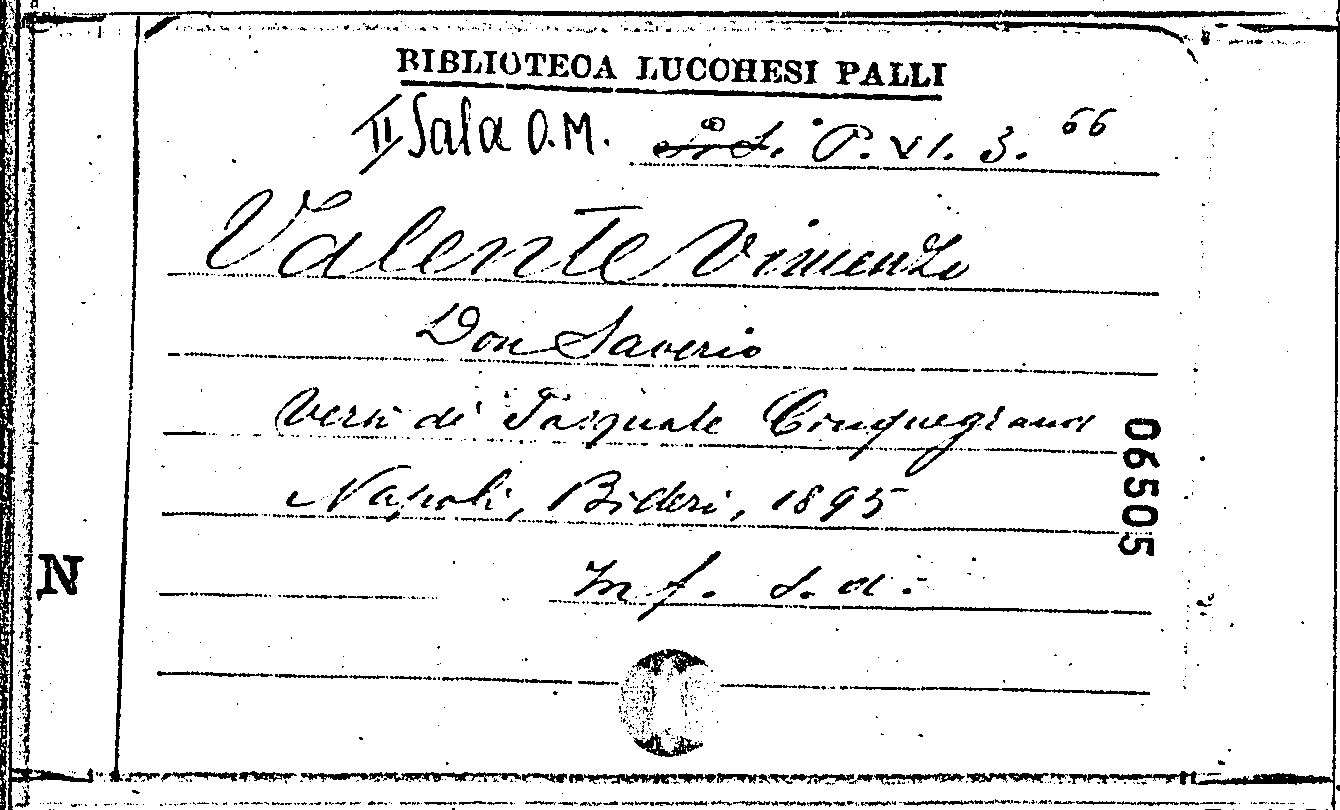 BIBLIOTECA LUCCHESI PALLI
II Sala O.M. P. VI. 3. 66
Valente Vincenzo
Don Saverio
Versi di Pasquale Cinquegrana
Napoli, Bideri, 1895
In f. s. d.
06505
N